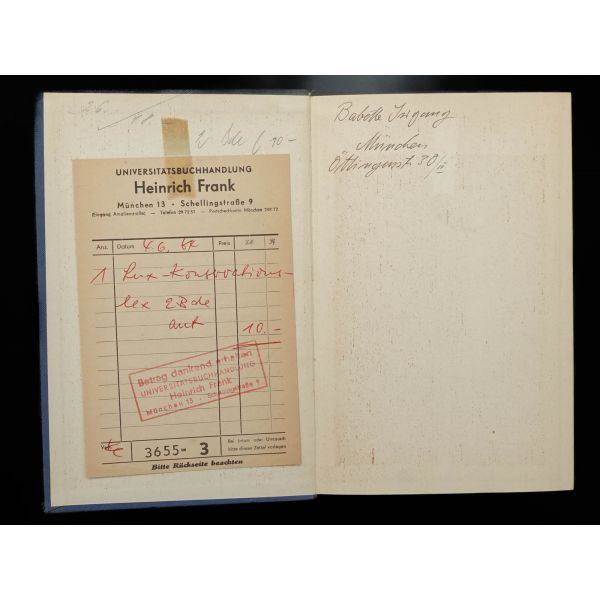 2 Bde f 10-
UNIVERSITÄTSBUCHHANDLUNG
Heinrich Frank
München 13 • Schellingstraße 9
(Eingang Amalienstraße) — Telefon 29 72 57 — Postscheckkonto München
Anz. Datum 4.6. Preis
1 Lux-Konservations-
lex 2 Bde
ant 10.-
Betrag dankend erhalten
UNIVERSITÄTSBUCHHANDLUNG
Heinrich Frank
München 13 • Schellingstraße 9
Verk.
3655 3
Bei Irrtum oder Umtausch
bitte diesen Zettel vorlegen
Bitte Rückseite beachten
Babette Irgang
München
Öttingenst. 30/II